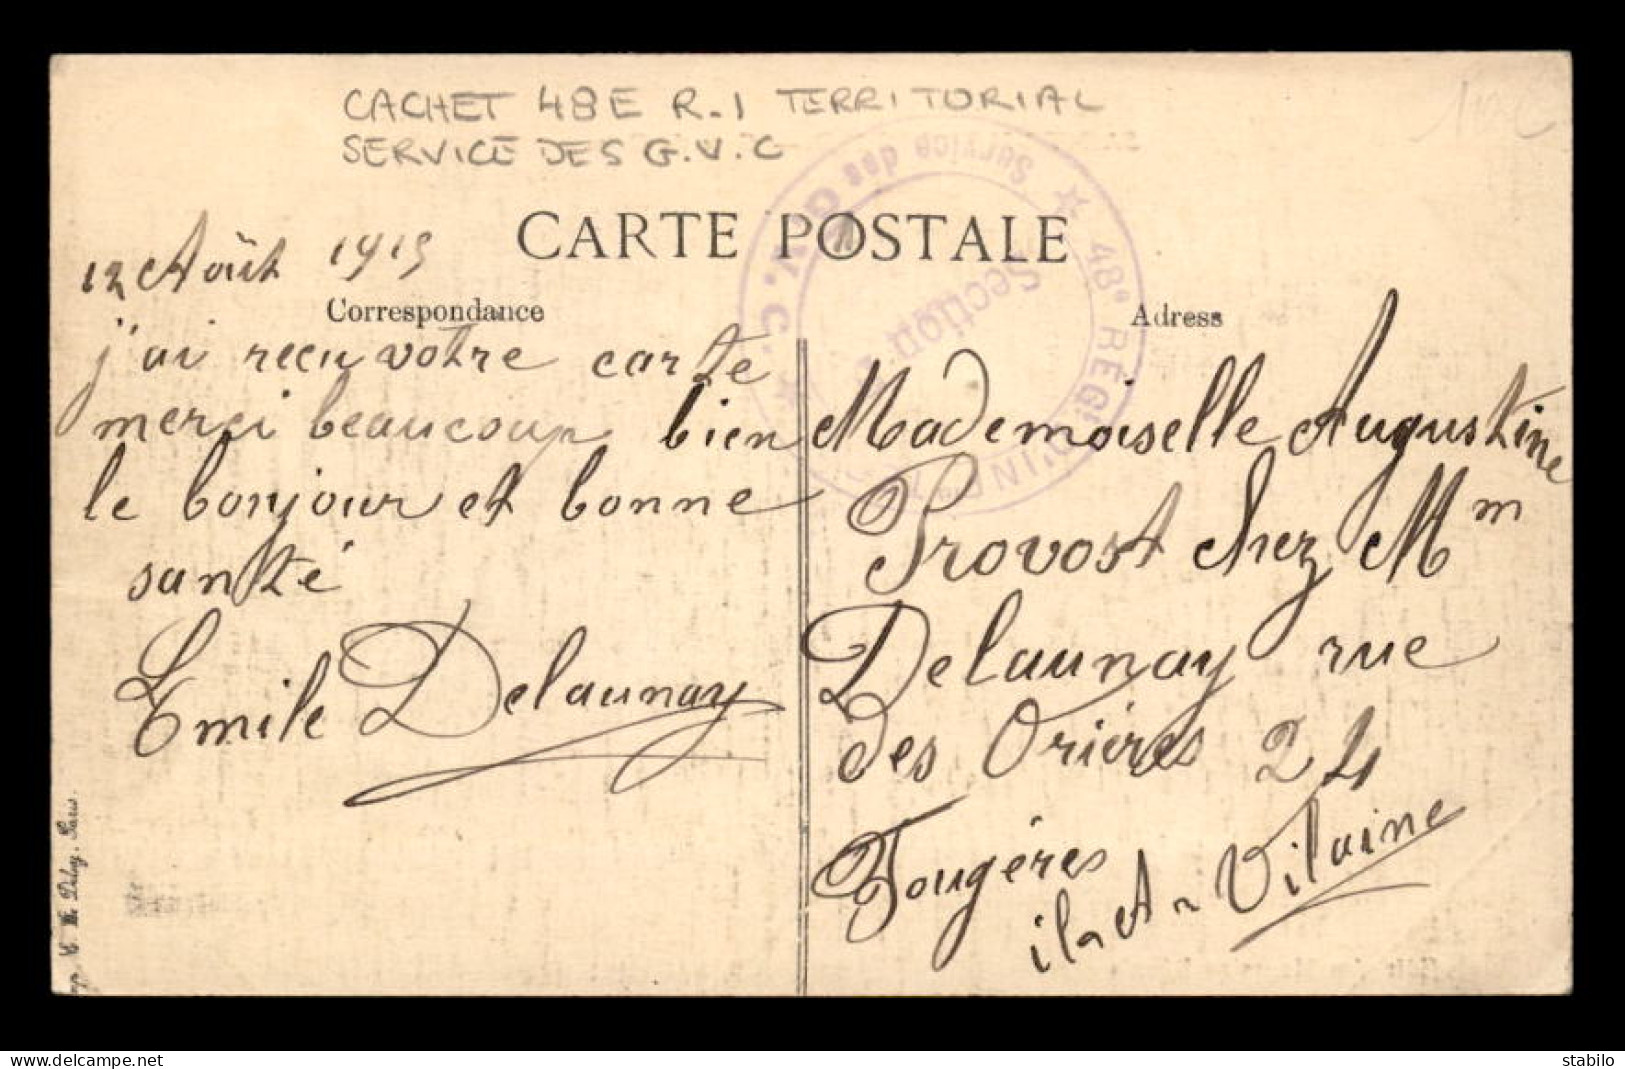 CACHET 48E R.I TERRITORIAL
SERVICE DES G.V.C
CARTE POSTALE
48e RÉGt D'INFie
Service des G.V.C.
Section
12 Août 1915
Correspondance
j'ai recu votre carte
merçi beaucoup bien
le bonjour et bonne
santé
Emile Delaunay
Adress
Mademoiselle Augustine
Provost Chez Mm
Delaunay rue
des Orières 24
Fougères
ila A Vilaine
Delay. Paris.
www.delcampe.net
stabilo